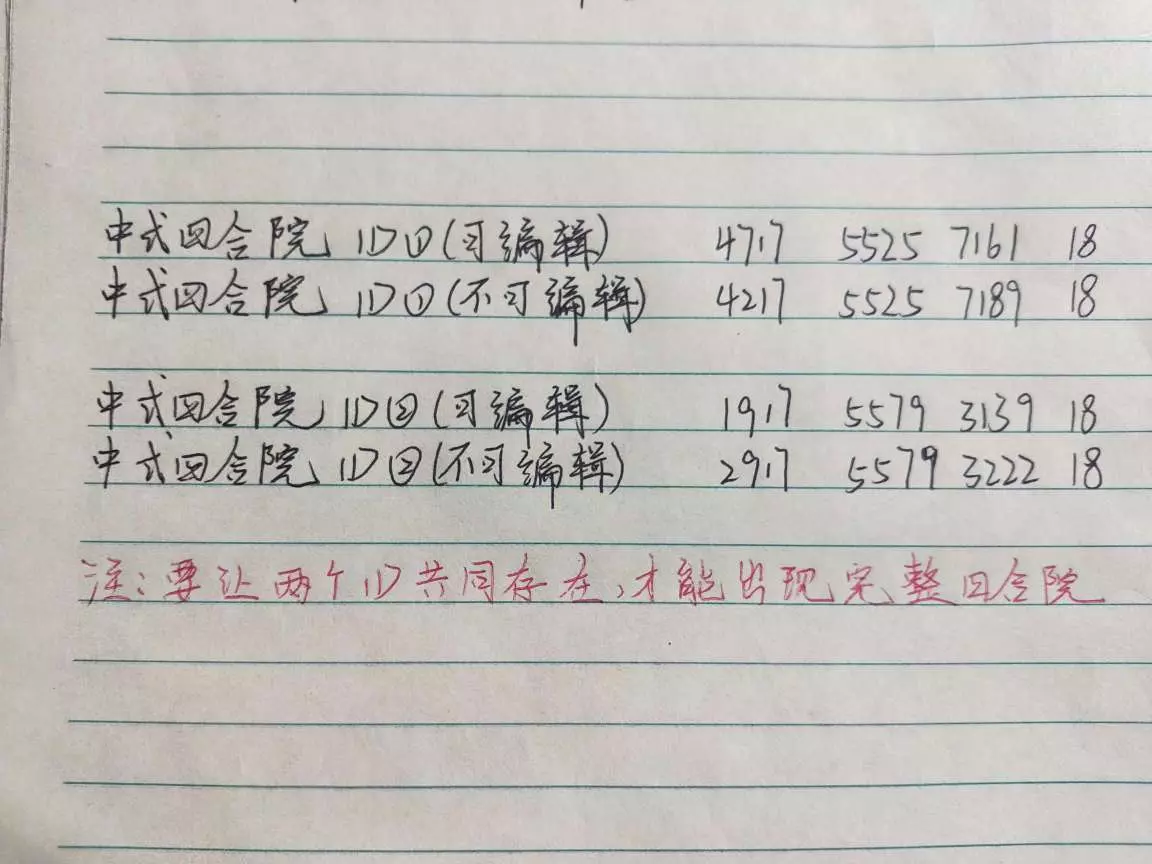 中式四合院 ID①(可编辑) 4717 5525 7161 18
中式四合院 ID①(不可编辑) 4217 5525 7189 18
中式四合院 ID②(可编辑) 1917 5579 3139 18
中式四合院 ID②(不可编辑) 2917 5579 3222 18
注:要让两个ID共同存在,才能出现完整四合院